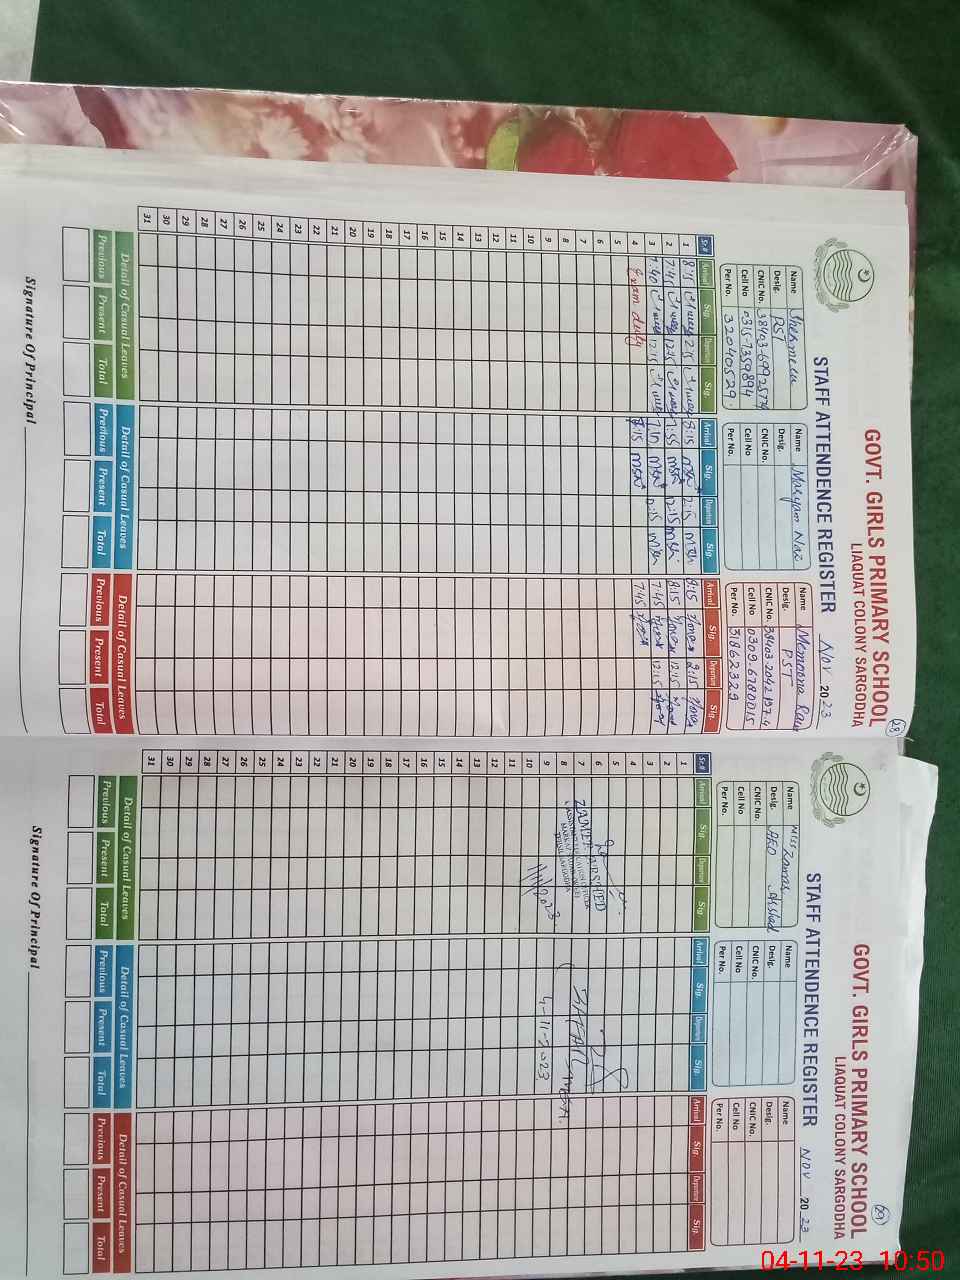 GOVT. GIRLS PRIMARY SCHOOL
28
LIAQUAT COLONY SARGODHA
STAFF ATTENDENCE REGISTER
Nov 2023
Name
Desig. PST
CNIC No.
Cell No 0315-7359894
Per No. 32040529.
Name Maryam Naz
Desig.
CNIC No.
Cell No
Per No.
Name Memoona
Desig. PST
CNIC No.
Cell No 0309.6780015
Per No. 31862329
Sr.# Arrival Sig. Departure Sig. Arrival Sig. Departure Sig. Arrival Sig. Departure Sig.
1 8:15 2:15 8:15 2:15 8:15 2:15
2 7:45 12:15 7:55 12:15 8:15 12:15
3 7:40 12:15 7:10 12:15 7:45 12:15
4 Exam duty 8:15 7:45
5
6
7
8
9
10
11
12
13
14
15
16
17
18
19
20
21
22
23
24
25
26
27
28
29
30
31
Detail of Casual Leaves Detail of Casual Leaves Detail of Casual Leaves
Previous Present Total Previous Present Total Previous Present Total
Signature Of Principal
GOVT. GIRLS PRIMARY SCHOOL
29
LIAQUAT COLONY SARGODHA
STAFF ATTENDENCE REGISTER
Nov 2023
Name Miss
Desig. AEO
CNIC No.
Cell No
Per No.
Name
Desig.
CNIC No.
Cell No
Per No.
Name
Desig.
CNIC No.
Cell No
Per No.
Sr.# Arrival Sig. Departure Sig. Arrival Sig. Departure Sig. Arrival Sig. Departure Sig.
1
2
3
4
5
6
7
8
9 4-11-2023
10
11
12
13
14
15
16
17
18
19
20
21
22
23
24
25
26
27
28
29
30
31
ASSISTANT EDUCATION OFFICER
Detail of Casual Leaves Detail of Casual Leaves Detail of Casual Leaves
Previous Present Total Previous Present Total Previous Present Total
Signature Of Principal
04-11-23 10:50